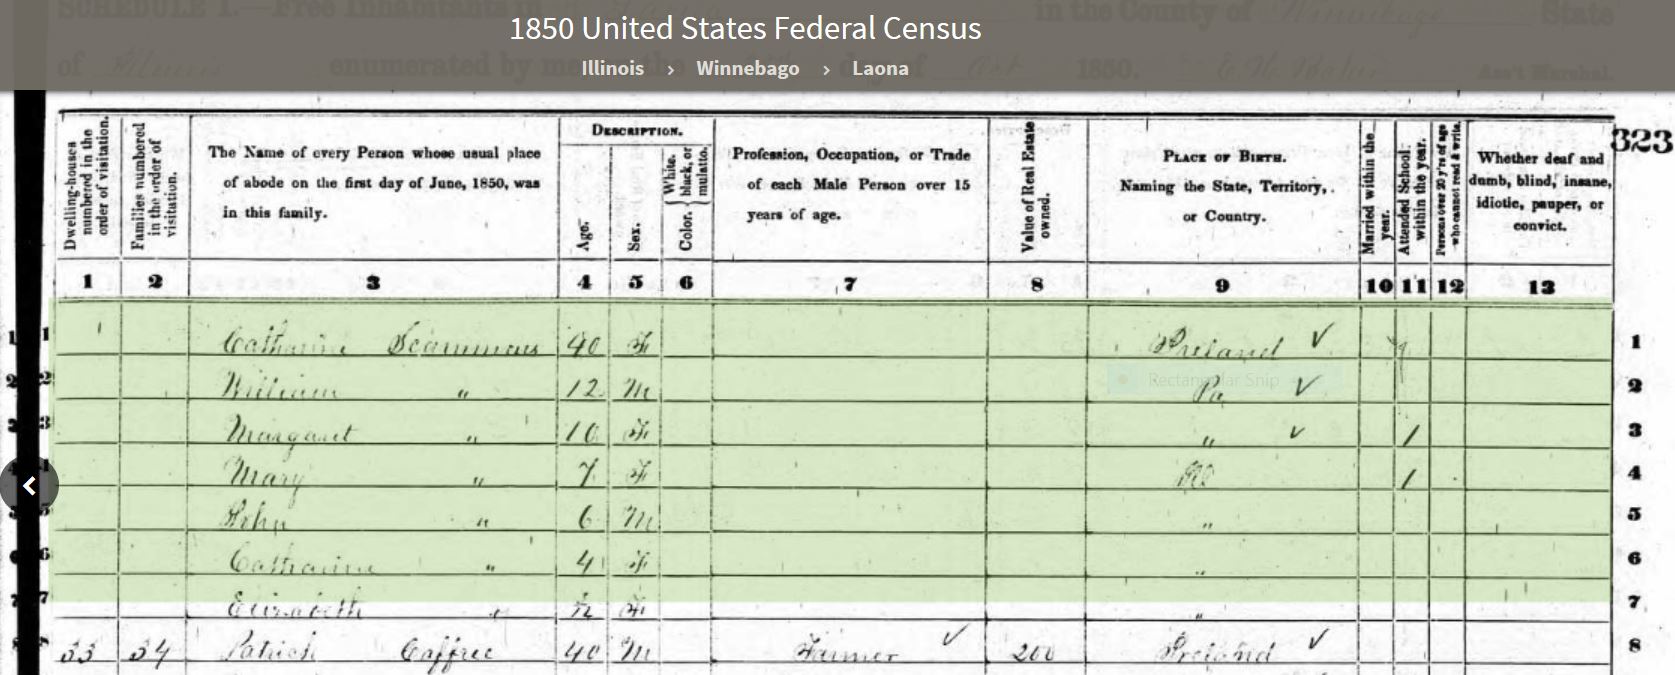 SCHEDULE I.—Free Inhabitants in in the County of Winnebago State
1850 United States Federal Census
of Illinois enumerated by me, on the day of Oct 1850. Ass't Marshal.
Illinois > Winnebago > Laona
323
Dwelling-houses numbered in the order of visitation.
Families numbered in the order of visitation.
The Name of every Person whose usual place of abode on the first day of June, 1850, was in this family.
DESCRIPTION.
Age.
Sex.
Color. { White, black, or mulatto.
Profession, Occupation, or Trade of each Male Person over 15 years of age.
Value of Real Estate owned.
PLACE OF BIRTH. Naming the State, Territory, or Country.
Married within the year.
Attended School within the year.
Persons over 20 y'rs of age who cannot read & write.
Whether deaf and dumb, blind, insane, idiotic, pauper, or convict.
1 2 3 4 5 6 7 8 9 10 11 12 13
1 Catharine Scammons 40 F Ireland ✓ 1
2 William " 12 M Pa ✓ 2
Rectangular Snip
3 Margaret " 10 F " ✓ / 3
4 Mary " 7 F Ill / 4
5 John " 6 M " 5
6 Catharine " 4 F " 6
7 Elizabeth " F " 7
8 33 34 Patrick Caffree 40 M Farmer ✓ 200 Ireland ✓ 8